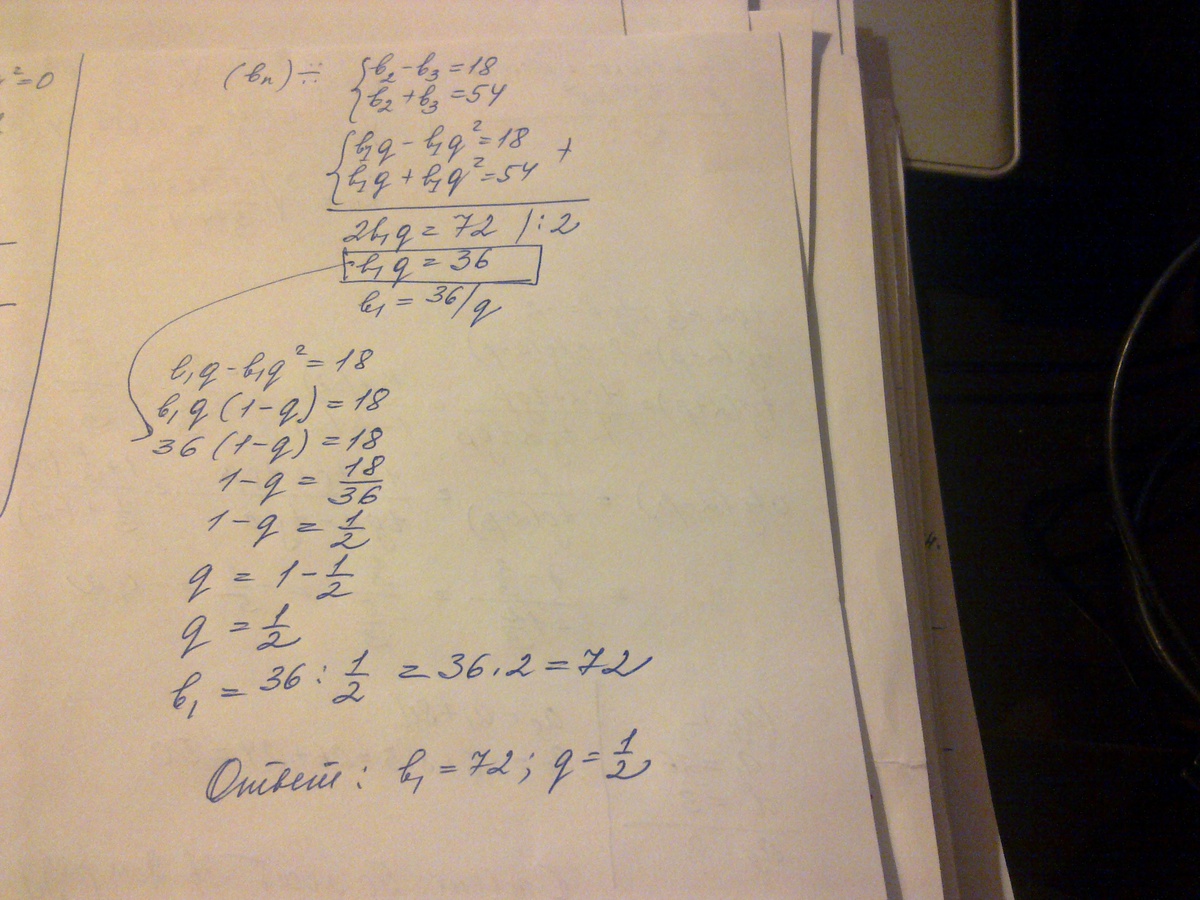 ² = 0
(bₙ) ÷ { b₂ - b₃ = 18
b₂ + b₃ = 54
{ b₁q - b₁q² = 18 +
b₁q + b₁q² = 54
2b₁q = 72 | : 2
b₁q = 36
b₁ = 36/q
b₁q - b₁q² = 18
b₁q (1 - q) = 18
36 (1 - q) = 18
1 - q = 18/36
1 - q = 1/2
q = 1 - 1/2
q = 1/2
b₁ = 36 : 1/2 = 36 · 2 = 72
Ответ: b₁ = 72; q = 1/2